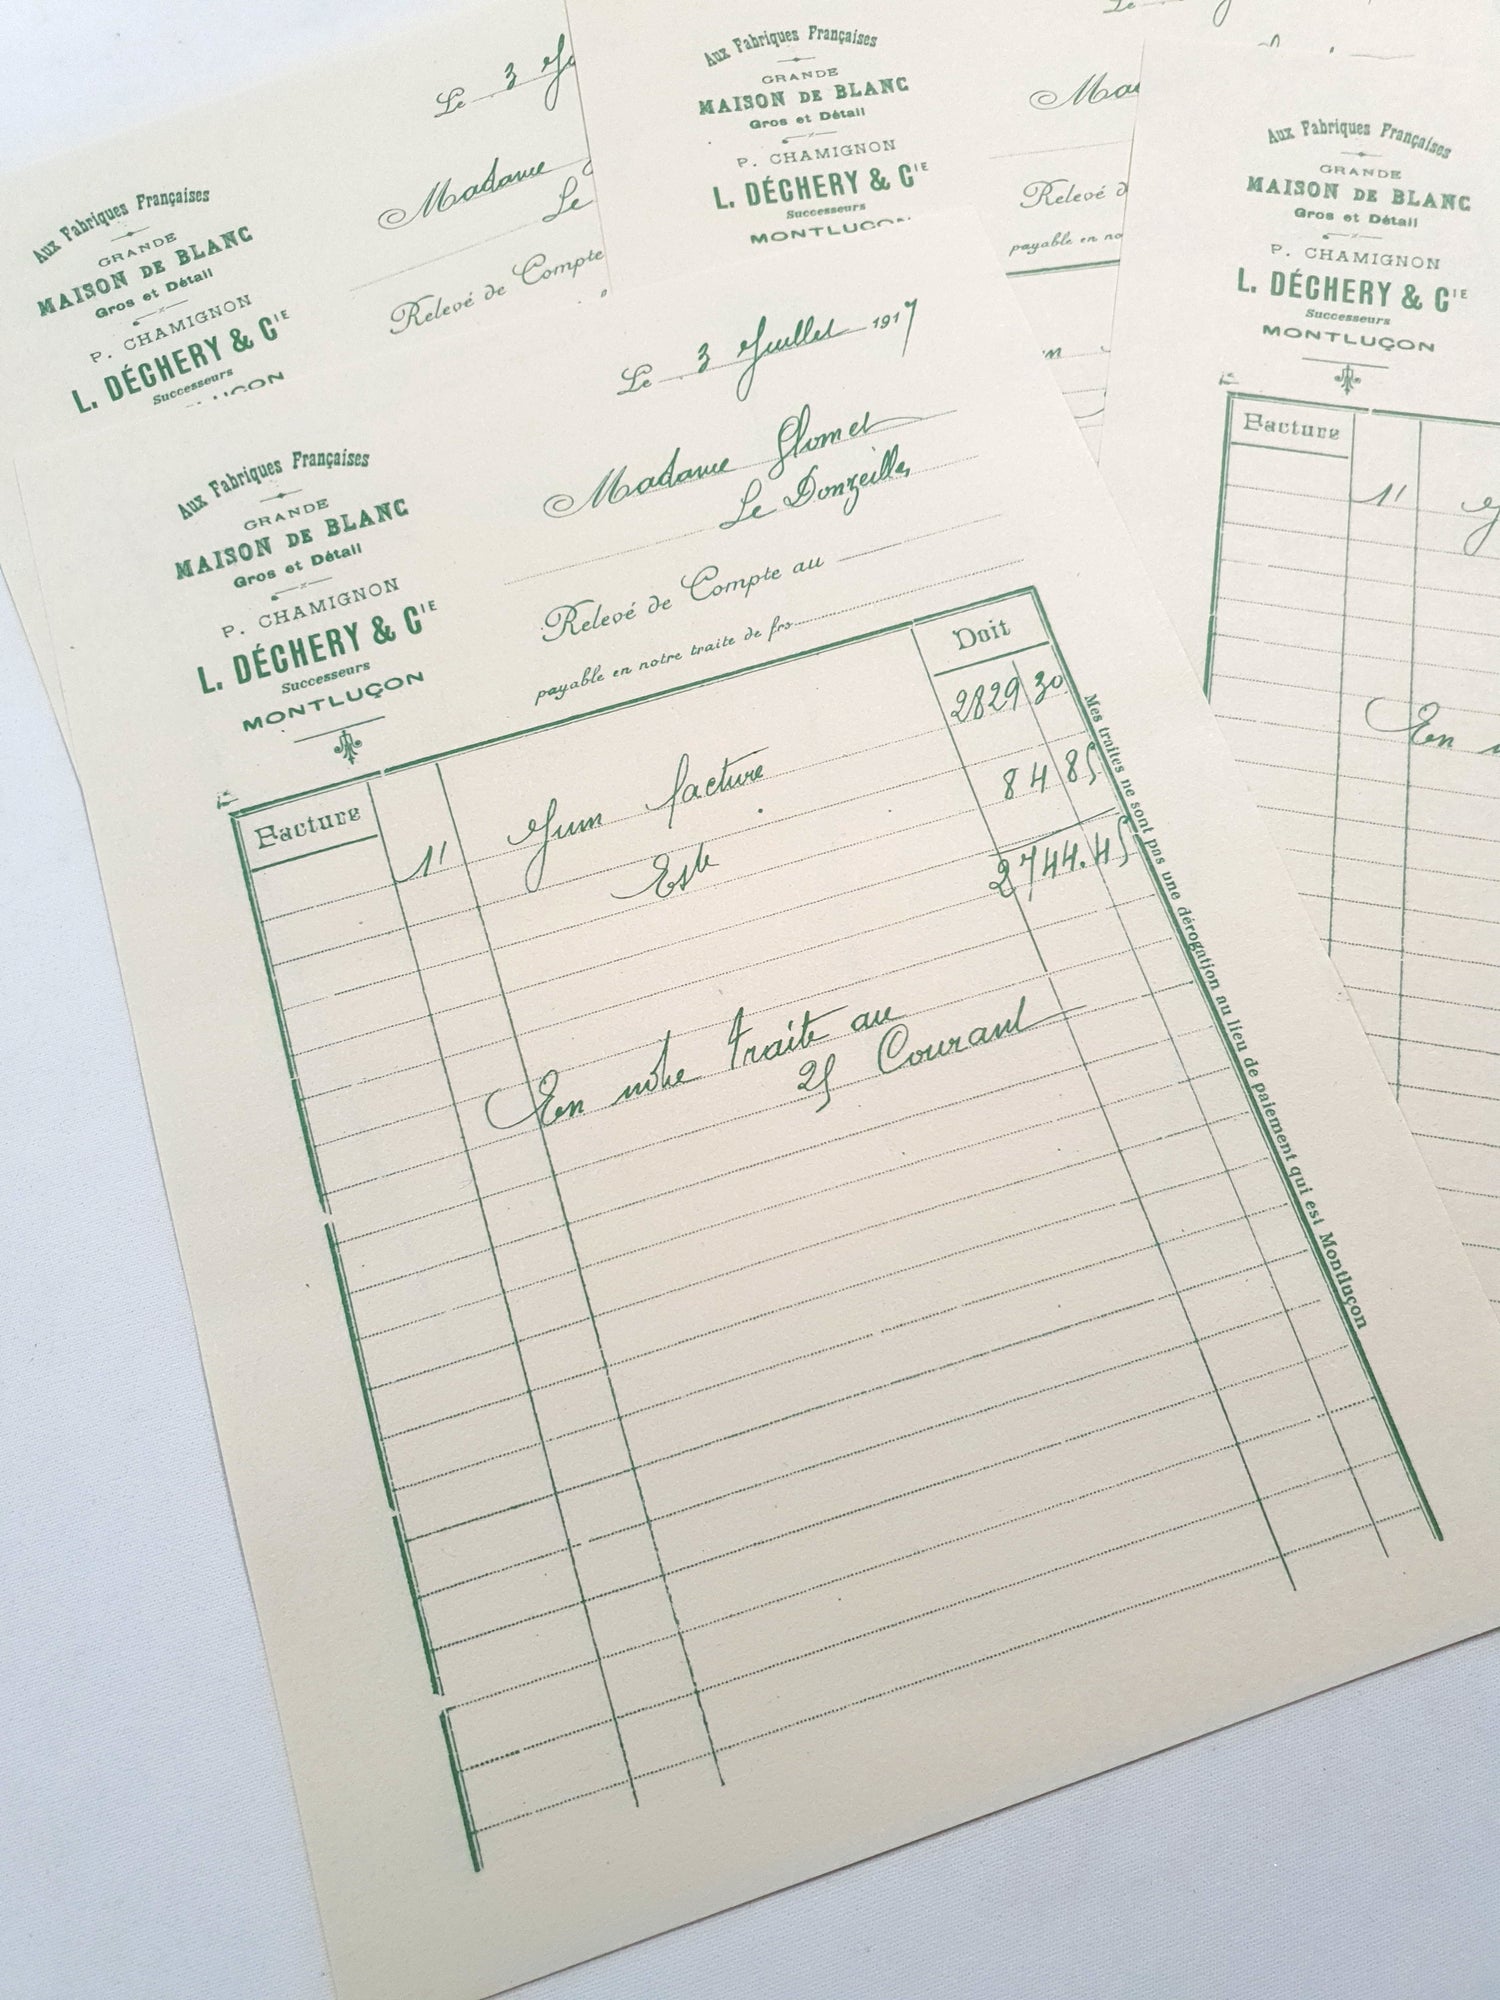 Le 3 
Madame
Le
Relevé de Compte
Aux Fabriques Françaises
GRANDE
MAISON DE BLANC
Gros et Détail
P. CHAMIGNON
L. DÉCHERY & CIE
Successeurs
Aux Fabriques Françaises
GRANDE
MAISON DE BLANC
Gros et Détail
P. CHAMIGNON
L. DÉCHERY & CIE
Successeurs
MONTLUÇON
Relevé d
payable en no
Aux Fabriques Françaises
GRANDE
MAISON DE BLANC
Gros et Détail
P. CHAMIGNON
L. DÉCHERY & CIE
Successeurs
MONTLUÇON
Facture
1er
En
Aux Fabriques Françaises
GRANDE
MAISON DE BLANC
Gros et Détail
P. CHAMIGNON
L. DÉCHERY & CIE
Successeurs
MONTLUÇON
Le 3 Juillet 1917
Madame Glomet
Le Donzeille
Relevé de Compte au
payable en notre traite de frs
Facture
Doit
1' Juin facture 2829 30
Este 84 85
2744.45
En notre traite au
25 Courant
Mes traites ne sont pas une dérogation au lieu de paiement qui est Montluçon